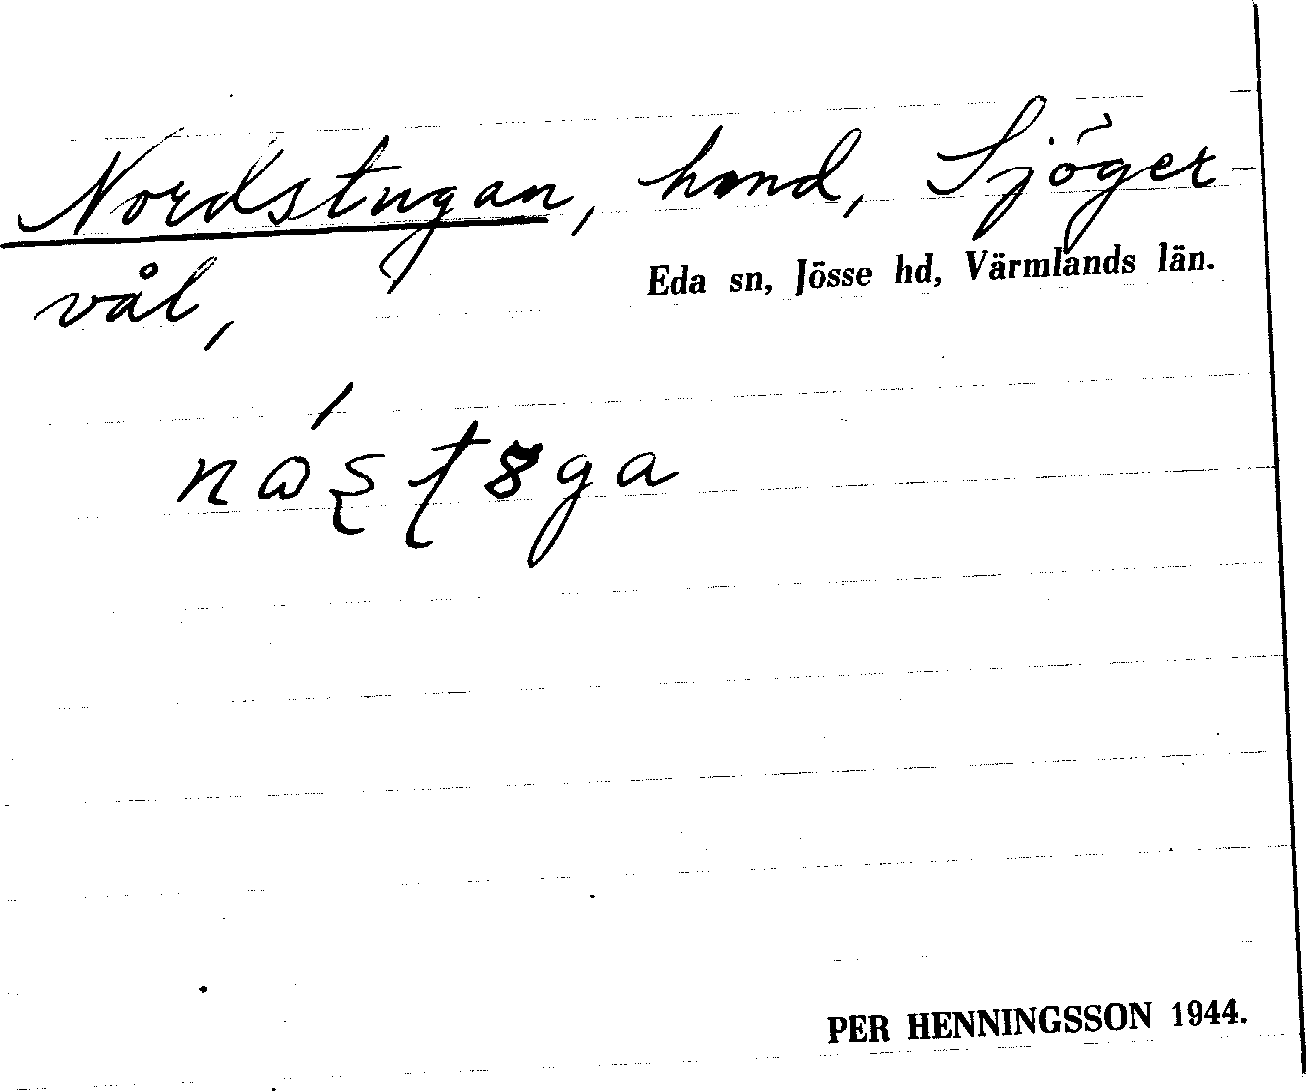 Nordstugan, hmnd, Sjöger
vål,
Eda sn, Jösse hd, Värmlands län.
PER HENNINGSSON 1944.